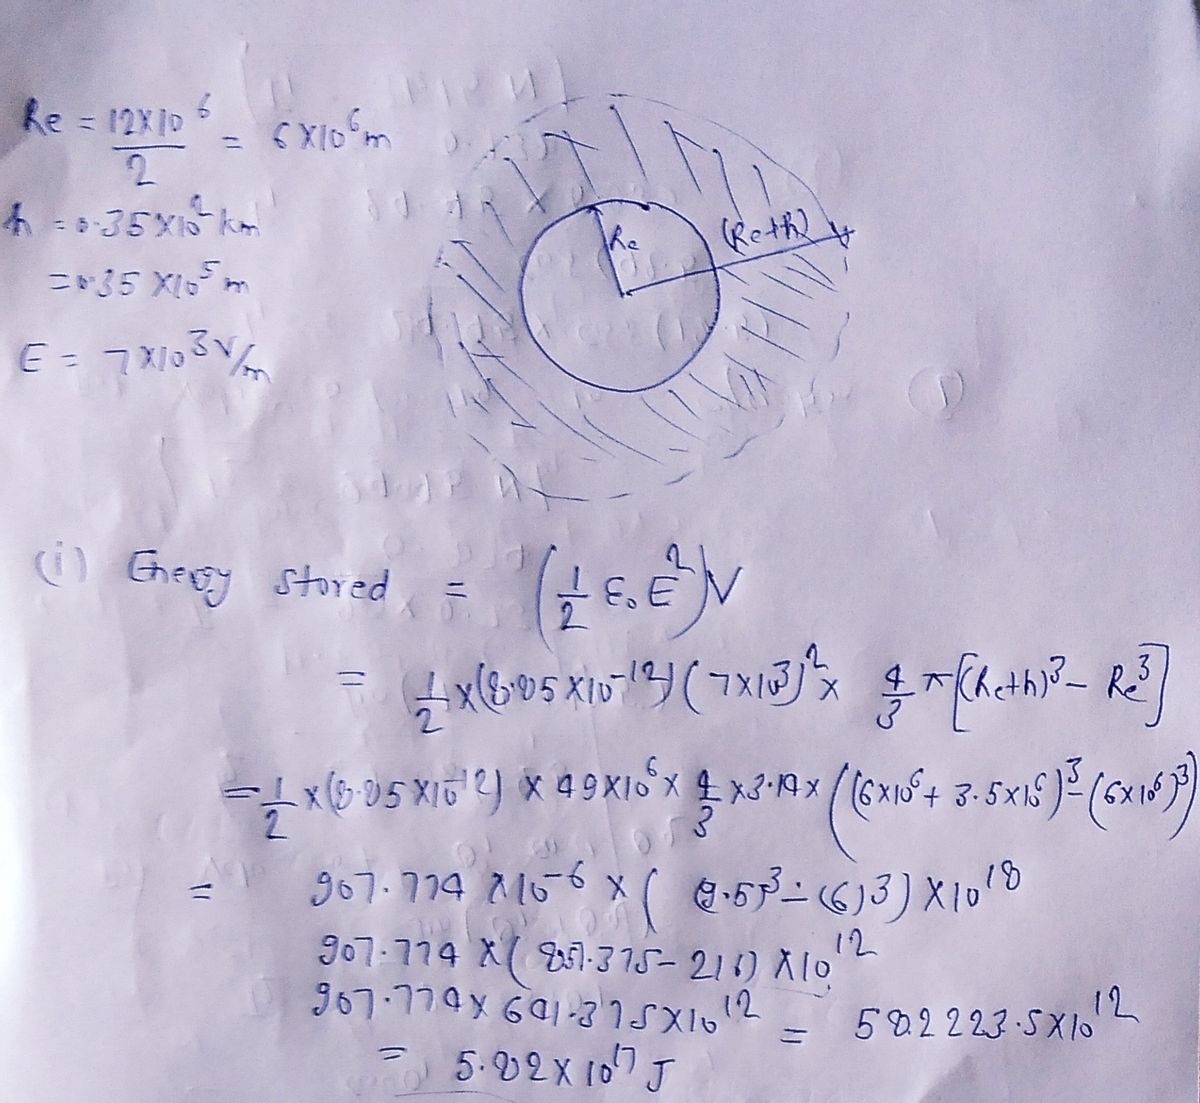 Re = 12×10⁶/2 = 6×10⁶m
h = 0.35×10² km
= 0.35 ×10⁵ m
E = 7×10³ V/m
Re
(Re+h)
(i) Energy stored = (1/2 ε₀E²)V
= 1/2 ×(8.85×10⁻¹²)(7×10³)² × 4/3 π[(Re+h)³ - Re³]
= 1/2 ×(8.85×10⁻¹²) × 49×10⁶ × 4/3 ×3.14× ((6×10⁶ + 3.5×10⁶)³ - (6×10⁶)³)
= 907.774 ×10⁻⁶ × (9.5)³ - (6)³) ×10¹⁸
907.774 ×(857.375 - 216) ×10¹²
907.774× 641.375×10¹² = 582223.5×10¹²
= 5.82×10¹⁷ J